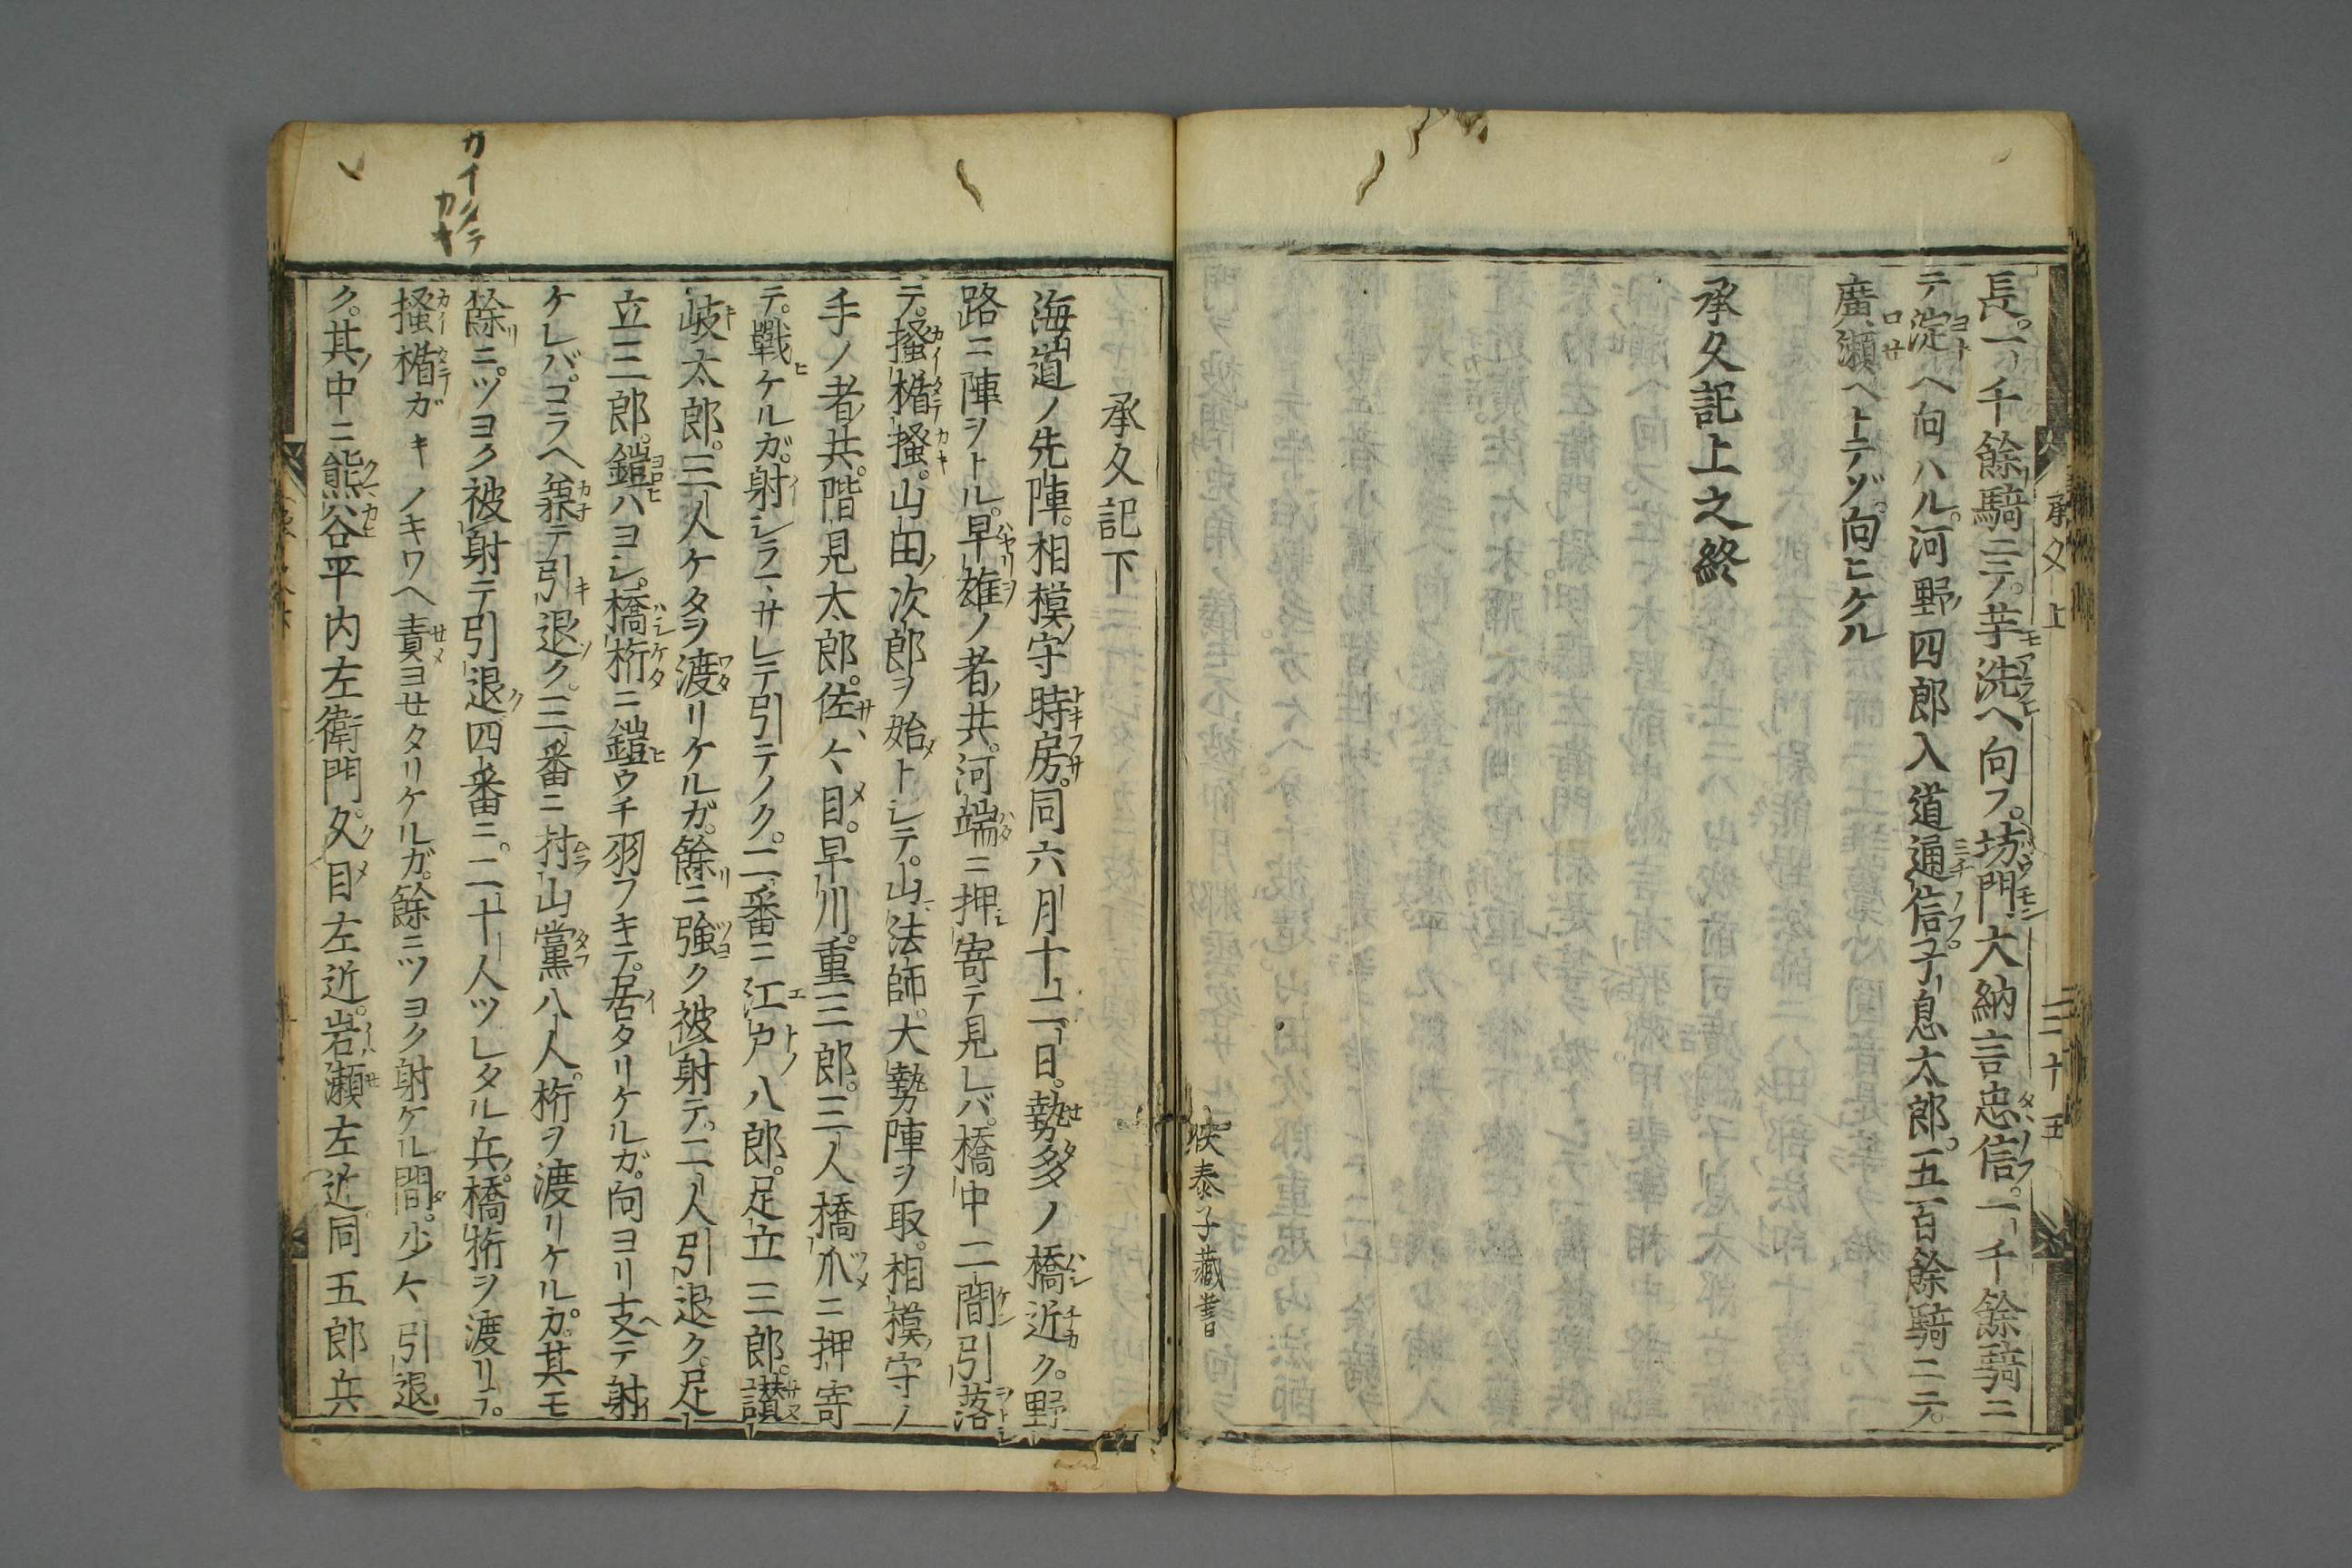 長一千餘騎ニテ。芋洗ヘ向フ。坊門大納言忠信。一千餘騎ニ
テ淀ヘ向ハル。河野四郎入道通信子息太郎。五百餘騎ニテ。
廣瀬ヘトテゾ。向ヒケル
承久記上之終
泰子藏書
承久上
三十五
承久記下
海道ノ先陣。相模守時房。同六月十二日。勢多ノ橋近ク。野
路ニ陣ヲトル。早雄ノ者共。河端ニ押寄テ見レバ。橋中二間引落
テ。掻楯掻。山田次郎ヲ始トシテ。山法師。大勢陣ヲ取。相模守ノ
手ノ者共。階見太郎。佐々目。早川。重三郎。三人橋爪ニ押寄
テ。戰ケルガ。射シラマサレテ引テノク。二番ニ江戸八郎。足立三郎。讃
岐太郎。三人ケタヲ渡リケルガ。餘ニ強ク被射テ。二人引退ク。足
立三郎。鎧ハヨシ。橋桁ニ鎧ウチ羽フキテ。居タリケルガ。向ヨリ支テ射
ケレバ。コラヘ兼テ引退ク。三番ニ村山黨八人。桁ヲ渡リケルガ。其モ
餘ニ。ツヨク被射テ引退ク四番ニ。二十人ツレタル兵。橋桁ヲ渡リテ。
掻楯ガキノキワヘ責ヨセタリケルガ。餘ニツヨク射ケル間。少々引退
ク。其中ニ熊谷平内左衛門。久目左近。岩瀬左近。同五郎兵
カイタテ
カキ